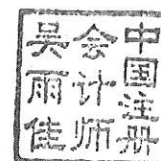 中国注册
会计师
吴雨佳